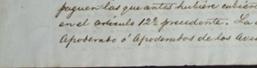 paguen las que antes hubiere
en el artículo 12º precedente. La
Apoderado ó Apoderados de los